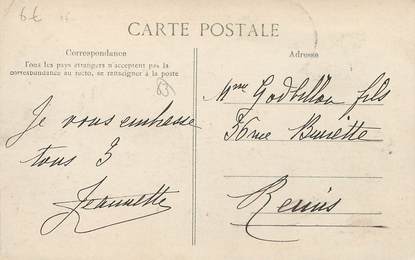 6€
CARTE POSTALE
Correspondance
Tous les pays étrangers n'acceptent pas la
correspondance au recto, se renseigner à la poste
Adresse
63
Je vous embrasse
tous 3
Jeannette
Mme Godbillon fils
36 rue Buirette
Reims